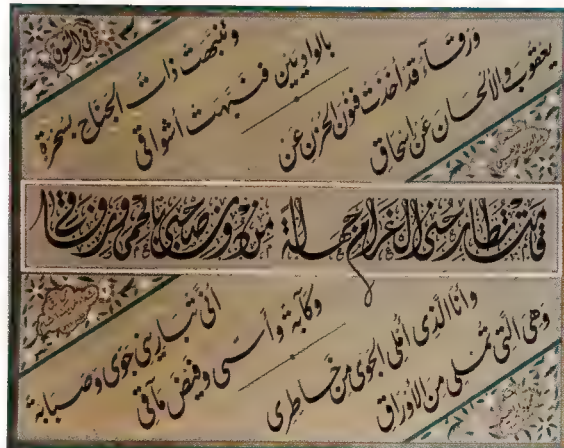 في الشوق
وتنبهت ذات الجناح بسحرة
بالواديين فنبهت أشواقي
ورقآء قد أخذت فنون الحزن عن
يعقوب والألحان عن إسحاق
قامت تطارحني الغرام جهالة من دون صحبي بالحمى ورفاقي
أنى تباريني جوى وصبابة
وكآبة وأسى وفيض مآقي
وأنا الذي أملي الجوى من خاطري
وهي التي تملي من الأوراق